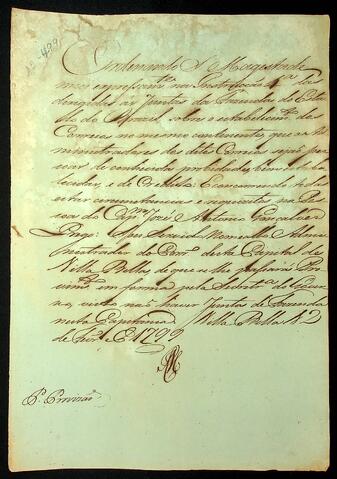 Nº 499
Ordenando S. Magestade
mui expressam.te na Instrucção 4.ª das
dirigidas ás Juntas da Fazenda do Esta
do do Brazil sobre o estabelecim.to de
Correios no mesmo continente, que os Ad
ministradores dos ditos Correios sejão pes
soas de conhecida probidade, bem estabe
lecidas, e de Credito: E concorrendo todas
estas circunstancias e requisitos na Pes
soa do Cap.m Mor José Antonio Gonçalves
Prego: Hey Servido nomeallo Admi
nistrador do Corr.º desta Capital de
Villa Bella, de que se lhe passará Pro
vim.to em forma pela Secretr.ª do Gover
no, visto não haver Junta de Fazenda
nesta Capitania. Villa Bella 12
de Fev.º de 1799
P. Provizão